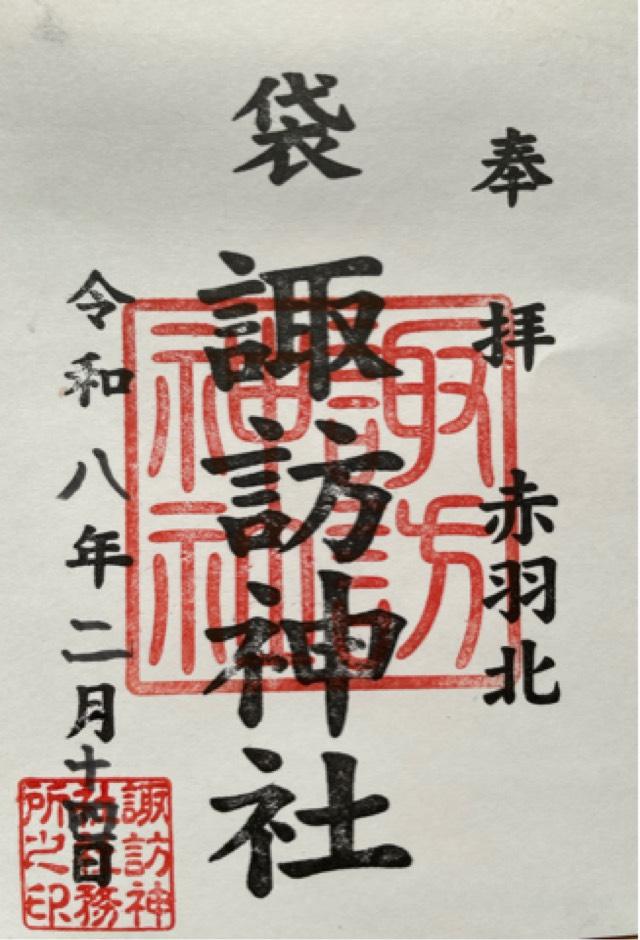 奉拝 赤羽北
袋 諏訪神社
令和八年二月十四日
諏訪神社
諏訪神社社務所之印